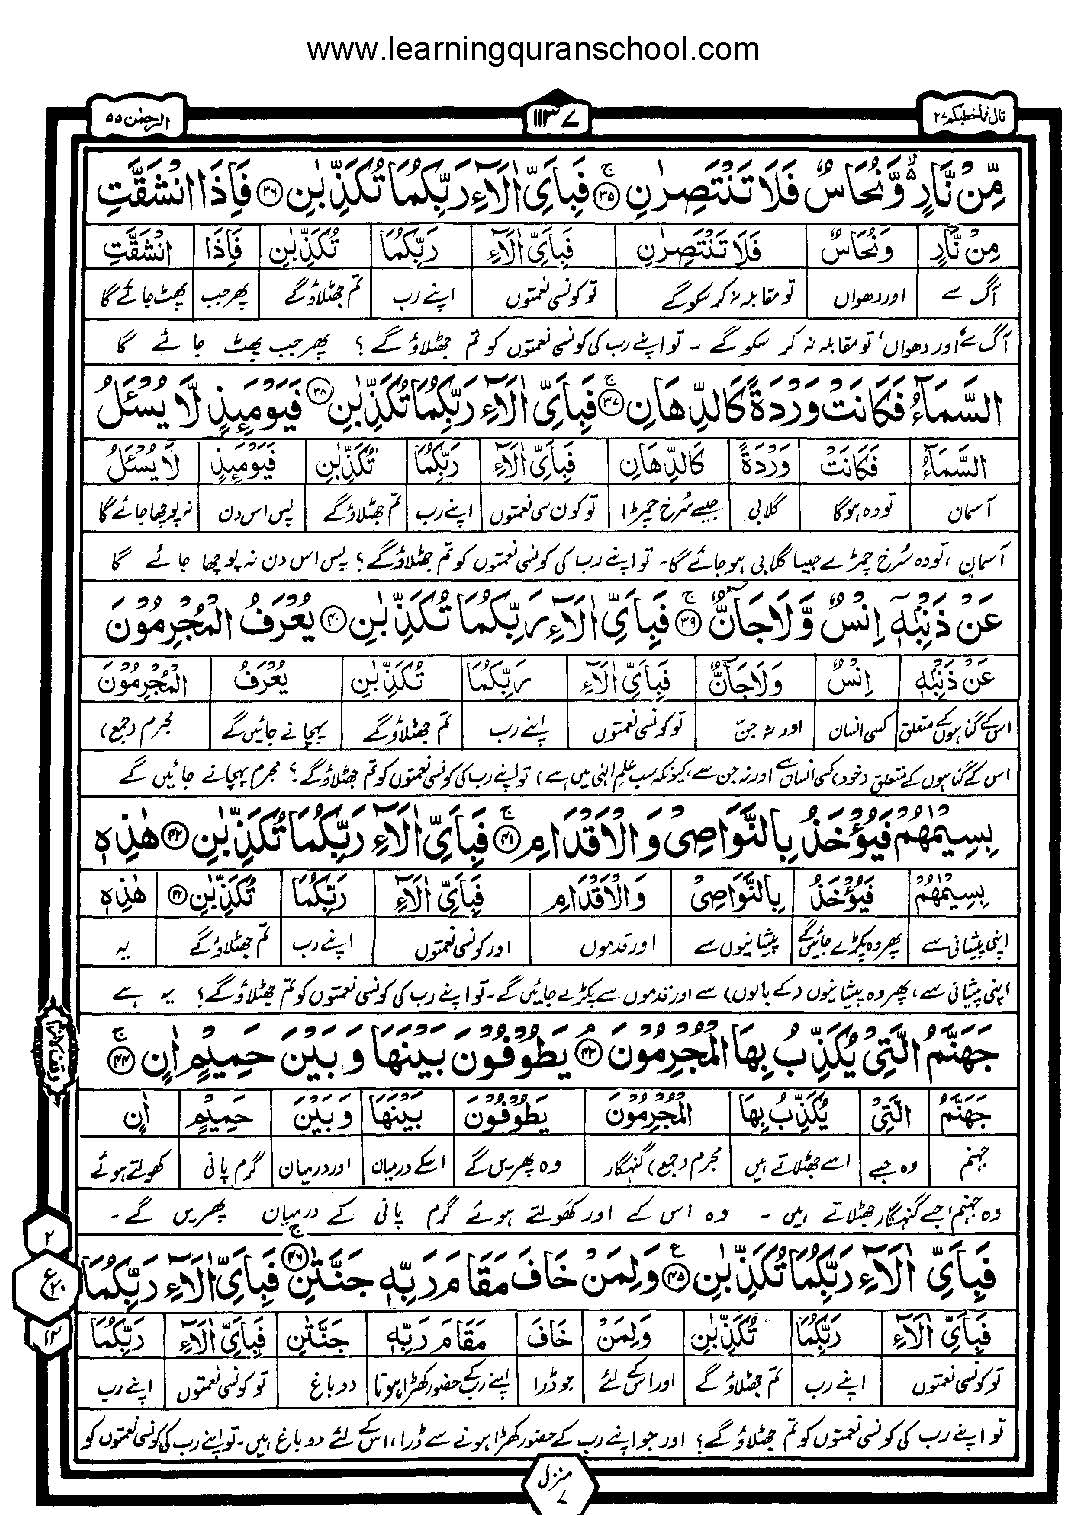 www.learningquranschool.com
قال فما خطبکم ۲۷
۱۱۳۷
الرحمٰن ۵۵
مِّنْ نَّارٍ ۙ وَّنُحَاسٌ فَلَا تَنْتَصِرٰنِ ۚ ۳۵ فَبِاَیِّ اٰلَآءِ رَبِّكُمَا تُكَذِّبٰنِ ۳۶ فَاِذَا انْشَقَّتِ
مِنْ نَّارٍ وَنُحَاسٌ فَلَا تَنْتَصِرٰنِ فَبِاَیِّ اٰلَآءِ رَبِّكُمَا تُكَذِّبٰنِ فَاِذَا انْشَقَّتِ
آگ سے اور دھواں تو مقابلہ نہ کر سکو گے تو کونسی نعمتوں اپنے رب تم جھٹلاؤ گے پھر جب پھٹ جائے گا
آگ سے اور دھواں، تو مقابلہ نہ کر سکو گے ۔ تو اپنے رب کی کونسی نعمتوں کو تم جھٹلاؤ گے ؟ پھر جب پھٹ جائے گا
السَّمَآءُ فَكَانَتْ وَرْدَةً كَالدِّهَانِ ۚ ۳۷ فَبِاَیِّ اٰلَآءِ رَبِّكُمَا تُكَذِّبٰنِ ۳۸ فَیَوْمَىِٕذٍ لَّا یُسْئَلُ
السَّمَآءُ فَكَانَتْ وَرْدَةً كَالدِّهَانِ فَبِاَیِّ اٰلَآءِ رَبِّكُمَا تُكَذِّبٰنِ فَیَوْمَىِٕذٍ لَا یُسْئَلُ
آسمان تو وہ ہوگا گلابی جیسے سُرخ چمڑا تو کون سی نعمتوں اپنے رب تم جھٹلاؤ گے پس اس دن نہ پوچھا جائے گا
آسمان ، تو وہ سُرخ چمڑے جیسا گلابی ہو جائے گا۔ تو اپنے رب کی کونسی نعمتوں کو تم جھٹلاؤ گے؟ پس اس دن نہ پوچھا جائے گا
عَنْ ذَنْۢبِهٖۤ اِنْسٌ وَّلَا جَآنٌّ ۚ ۳۹ فَبِاَیِّ اٰلَآءِ رَبِّكُمَا تُكَذِّبٰنِ ۴۰ یُعْرَفُ الْمُجْرِمُوْنَ
عَنْ ذَنْۢبِهٖ اِنْسٌ وَلَا جَآنٌّ فَبِاَیِّ اٰلَآءِ رَبِّكُمَا تُكَذِّبٰنِ یُعْرَفُ الْمُجْرِمُوْنَ
اس کے گناہوں کے متعلق کسی انسان اور نہ جن تو کونسی نعمتوں اپنے رب تم جھٹلاؤ گے پہچانے جائیں گے مجرم (جمع)
اس کے گناہوں کے متعلق (خود) کسی انسان سے اور نہ جن سے (کیونکہ سب علم الٰہی میں ہے) تو اپنے رب کی کونسی نعمتوں کو تم جھٹلاؤ گے؟ مجرم پہچانے جائیں گے
بِسِیْمٰهُمْ فَیُؤْخَذُ بِالنَّوَاصِیْ وَ الْاَقْدَامِ ۚ ۴۱ فَبِاَیِّ اٰلَآءِ رَبِّكُمَا تُكَذِّبٰنِ ۴۲ هٰذِهٖ
بِسِیْمٰهُمْ فَیُؤْخَذُ بِالنَّوَاصِیْ وَالْاَقْدَامِ فَبِاَیِّ اٰلَآءِ رَبِّكُمَا تُكَذِّبٰنِ ۴۲ هٰذِهٖ
اپنی پیشانی سے پھر وہ پکڑے جائیں گے پیشانیوں سے اور قدموں اور کونسی نعمتوں اپنے رب تم جھٹلاؤ گے یہ
اپنی پیشانی سے، پھر وہ پیشانیوں (کے بالوں) سے اور قدموں سے پکڑے جائیں گے۔ تو اپنے رب کی کونسی نعمتوں کو تم جھٹلاؤ گے؟ یہ ہے
جَهَنَّمُ الَّتِیْ یُكَذِّبُ بِهَا الْمُجْرِمُوْنَ ۘ ۴۳ یَطُوْفُوْنَ بَیْنَهَا وَ بَیْنَ حَمِیْمٍ اٰنٍ ۚ ۴۴
جَهَنَّمُ الَّتِیْ یُكَذِّبُ بِهَا الْمُجْرِمُوْنَ یَطُوْفُوْنَ بَیْنَهَا وَ بَیْنَ حَمِیْمٍ اٰنٍ
جہنم وہ جسے اسے جھٹلاتے ہیں مجرم (جمع) گنہگار وہ پھریں گے اسکے درمیان اور درمیان گرم پانی کھولتے ہوئے
وہ جہنم جسے گنہگار جھٹلاتے ہیں ۔ وہ اس کے اور کھولتے ہوئے گرم پانی کے درمیان پھریں گے ۔
فَبِاَیِّ اٰلَآءِ رَبِّكُمَا تُكَذِّبٰنِ ۴۵ وَلِمَنْ خَافَ مَقَامَ رَبِّهٖ جَنَّتٰنِ ۚ ۴۶ فَبِاَیِّ اٰلَآءِ رَبِّكُمَا
فَبِاَیِّ اٰلَآءِ رَبِّكُمَا تُكَذِّبٰنِ وَلِمَنْ خَافَ مَقَامَ رَبِّهٖ جَنَّتٰنِ فَبِاَیِّ اٰلَآءِ رَبِّكُمَا
تو کونسی نعمتوں اپنے رب تم جھٹلاؤ گے اور اس کے لئے جو ڈرا اپنے رب کے حضور کھڑا ہونا دو باغ تو کونسی نعمتوں اپنے رب
تو اپنے رب کی کونسی نعمتوں کو تم جھٹلاؤ گے؟ اور جو اپنے رب کے حضور کھڑا ہونے سے ڈرا، اس کے لئے دو باغ ہیں۔ تو اپنے رب کی کونسی نعمتوں کو
۲
ع ۲۰
۱۲
منزل ۷